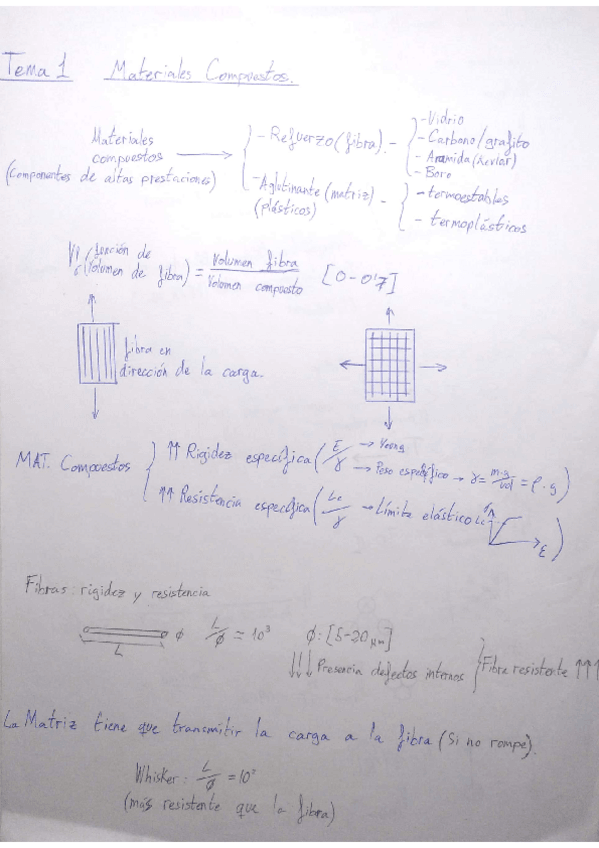 Tema 1 Materiales Compuestos.
Materiales compuestos (Componentes de altas prestaciones) →
- Refuerzo (fibra). -
- Vidrio
- Carbono/grafito
- Aramida (Kevlar)
- Boro
- Aglutinante (matriz) - (plásticos)
- termoestables
- termoplásticos
(Volumen de fibra) = Volumen fibra / Volumen compuesto [0-0'7]
fibra en
dirección de la carga.
MAT. Compuestos
↑↑ Rigidez específica (E/γ → Young → Peso específico → γ = m·g/vol = ρ·g)
↑↑ Resistencia específica (Le/γ → Límite elástico Le ε)
Fibras: rigidez y resistencia
L φ L/φ ≃ 10³ φ: [5-20 μm]
↓↓↓ Presencia defectos internos } Fibra resistente ↑↑↑
La Matriz tiene que transmitir la carga a la fibra (Si no rompe).
Whisker: L/φ = 10²
(más resistente que la fibra)